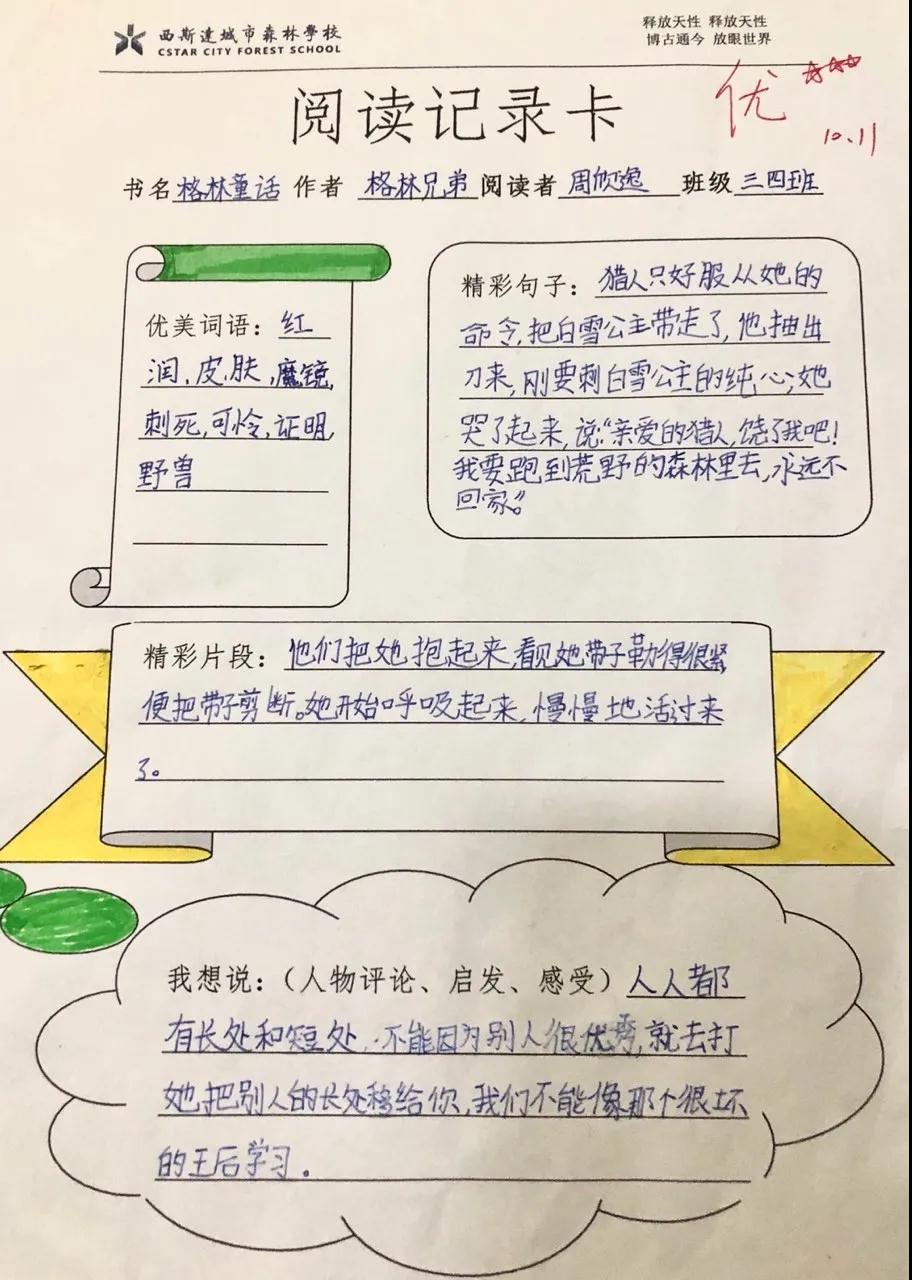 西斯達城市森林學校
CSTAR CITY FOREST SCHOOL
释放天性 释放天性
博古通今 放眼世界
优
10.11
阅读记录卡
书名 格林童话 作者 格林兄弟 阅读者 周欣逸 班级 三四班
优美词语：红
润,皮肤,魔镜,
刺死,可怜,证明,
野兽
精彩句子：猎人只好服从她的
命令,把白雪公主带走了,他抽出
刀来,刚要刺白雪公主的纯心,她
哭了起来,说:“亲爱的猎人,饶了我吧!
我要跑到荒野的森林里去,永远不
回家。”
精彩片段：他们把她抱起来,看见她带子勒得很紧
便把带子剪断。她开始呼吸起来,慢慢地活过来
了。
我想说：（人物评论、启发、感受）人人都
有长处和短处,不能因为别人很优秀,就去打
她把别人的长处移给你,我们不能像那个很坏
的王后学习.